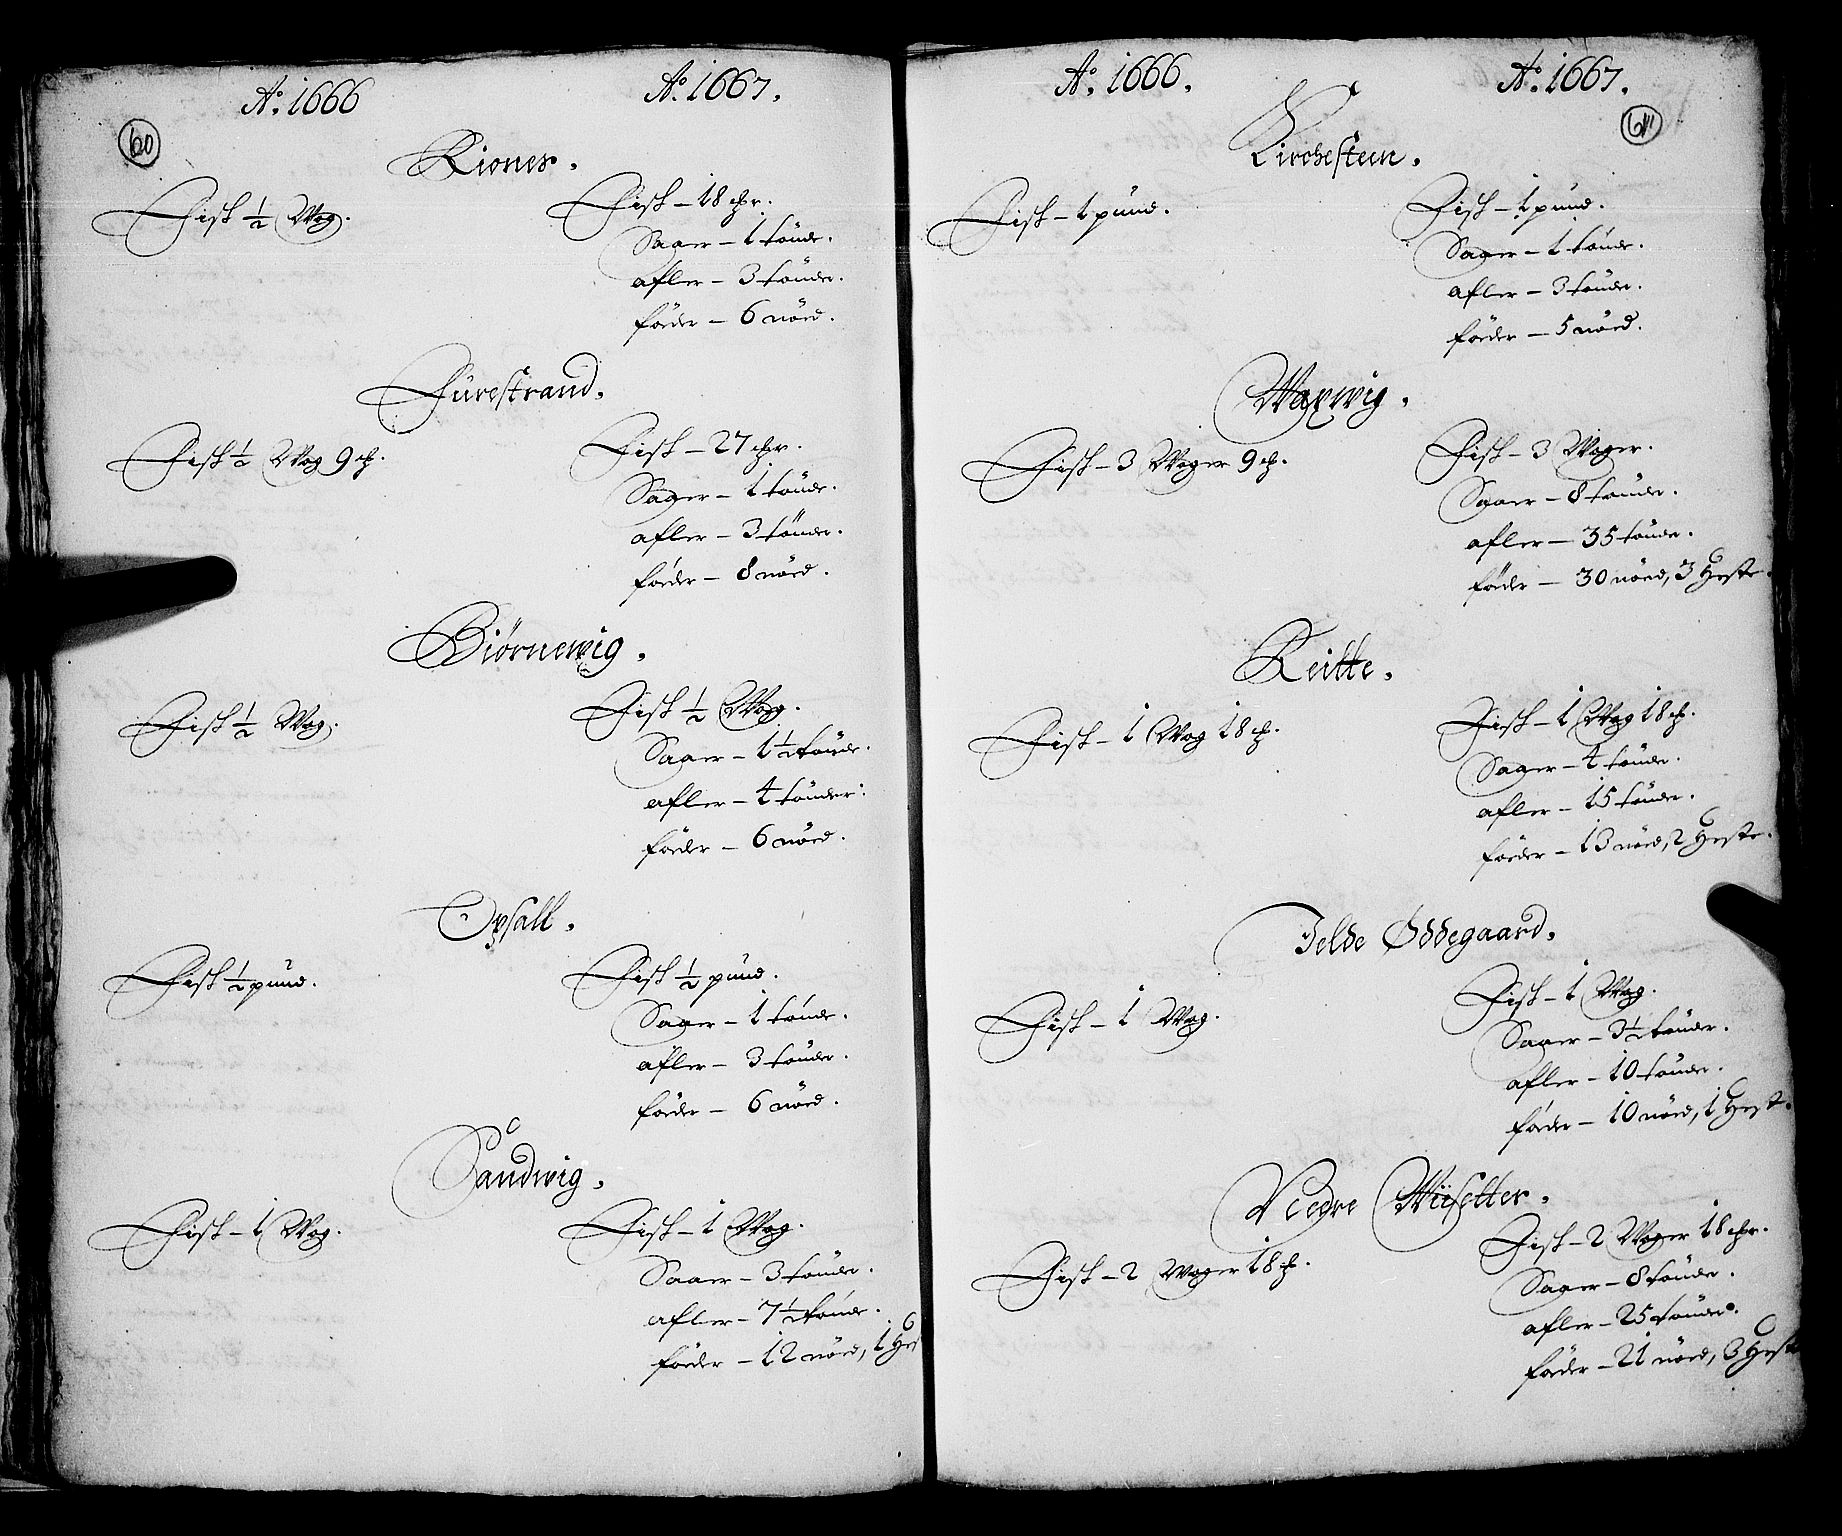 Ao. 1666
Ao. 1667.
60
Kiones.
Fisk ½ Wog.
Fisk – 18 ʠr.
Saaer – 1 tönde.
afler – 3 tönder.
föder – 6 nöed.
Fürestrand.
Fisk ½ Wog 9 ʠ.
Fisk – 27 ʠr.
Saaer – 1 tönde.
afler – 3 tönder.
föder – 8 nöed.
Biörnewig.
Fisk ½ Wog.
Fisk ½ Wog.
Saaer – 1½ tönde.
afler – 4 tönder.
föder – 6 nöed.
Opsall.
Fisk ½ pund.
Fisk ½ pund.
Saaer – 1 tönde.
afler – 3 tönder.
föder – 6 nöed.
Sandwig.
Fisk – 1 Wog.
Fisk – 1 Wog.
Saaer – 3 tönder.
afler – 7½ tönde.
föder – 12 nöed, 1 Hes
Ao. 1666.
Ao. 1667.
61
Kirchesteen.
Fisk – 1 pund.
Fisk – 1 pund.
Saaer – 1 tönde.
afler – 3 tönder.
föder – 5 nöed.
Waxwig.
Fisk – 3 Woger 9 ʠ.
Fisk – 3 Woger.
Saaer – 8 tönder.
afler – 35 tönder.
föder – 30 nöed, 3 Heste.
Reitte.
Fisk – 1 Wog 18 ʠ.
Fisk – 1 Wog 18 ʠ.
Saaer – 4 tönder.
afler – 15 tönder.
föder – 13 nöed, 2 Heste.
Jelde Øddegaard.
Fisk – 1 Wog.
Fisk – 1 Wog.
Saaer – 3½ tönder.
afler – 10 tönder.
föder – 10 nöed, 1 Hest.
Nedre Wiisetter.
Fisk – 2 Woger 18 ʠ.
Fisk – 2 Woger 18 ʠr.
Saaer – 8 tönder.
afler – 25 tönder.
föder – 21 nöed, 3 Heste